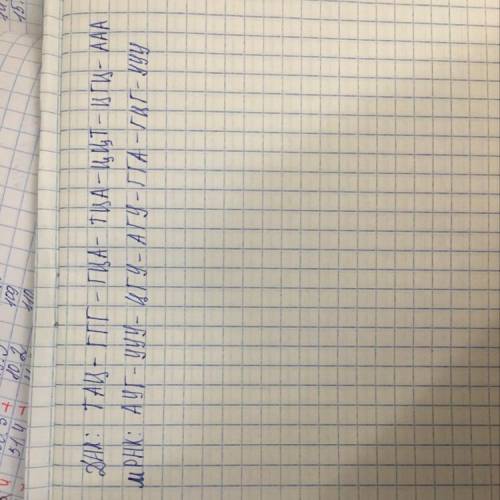 ДНК: ТАЦ - ГГГ - ГЦА - ТЦА - ЦЦТ - ЦГЦ - ААА
мРНК: АУГ - УУУ - ЦГУ - АГУ - ГГА - ГЦГ - УУУ